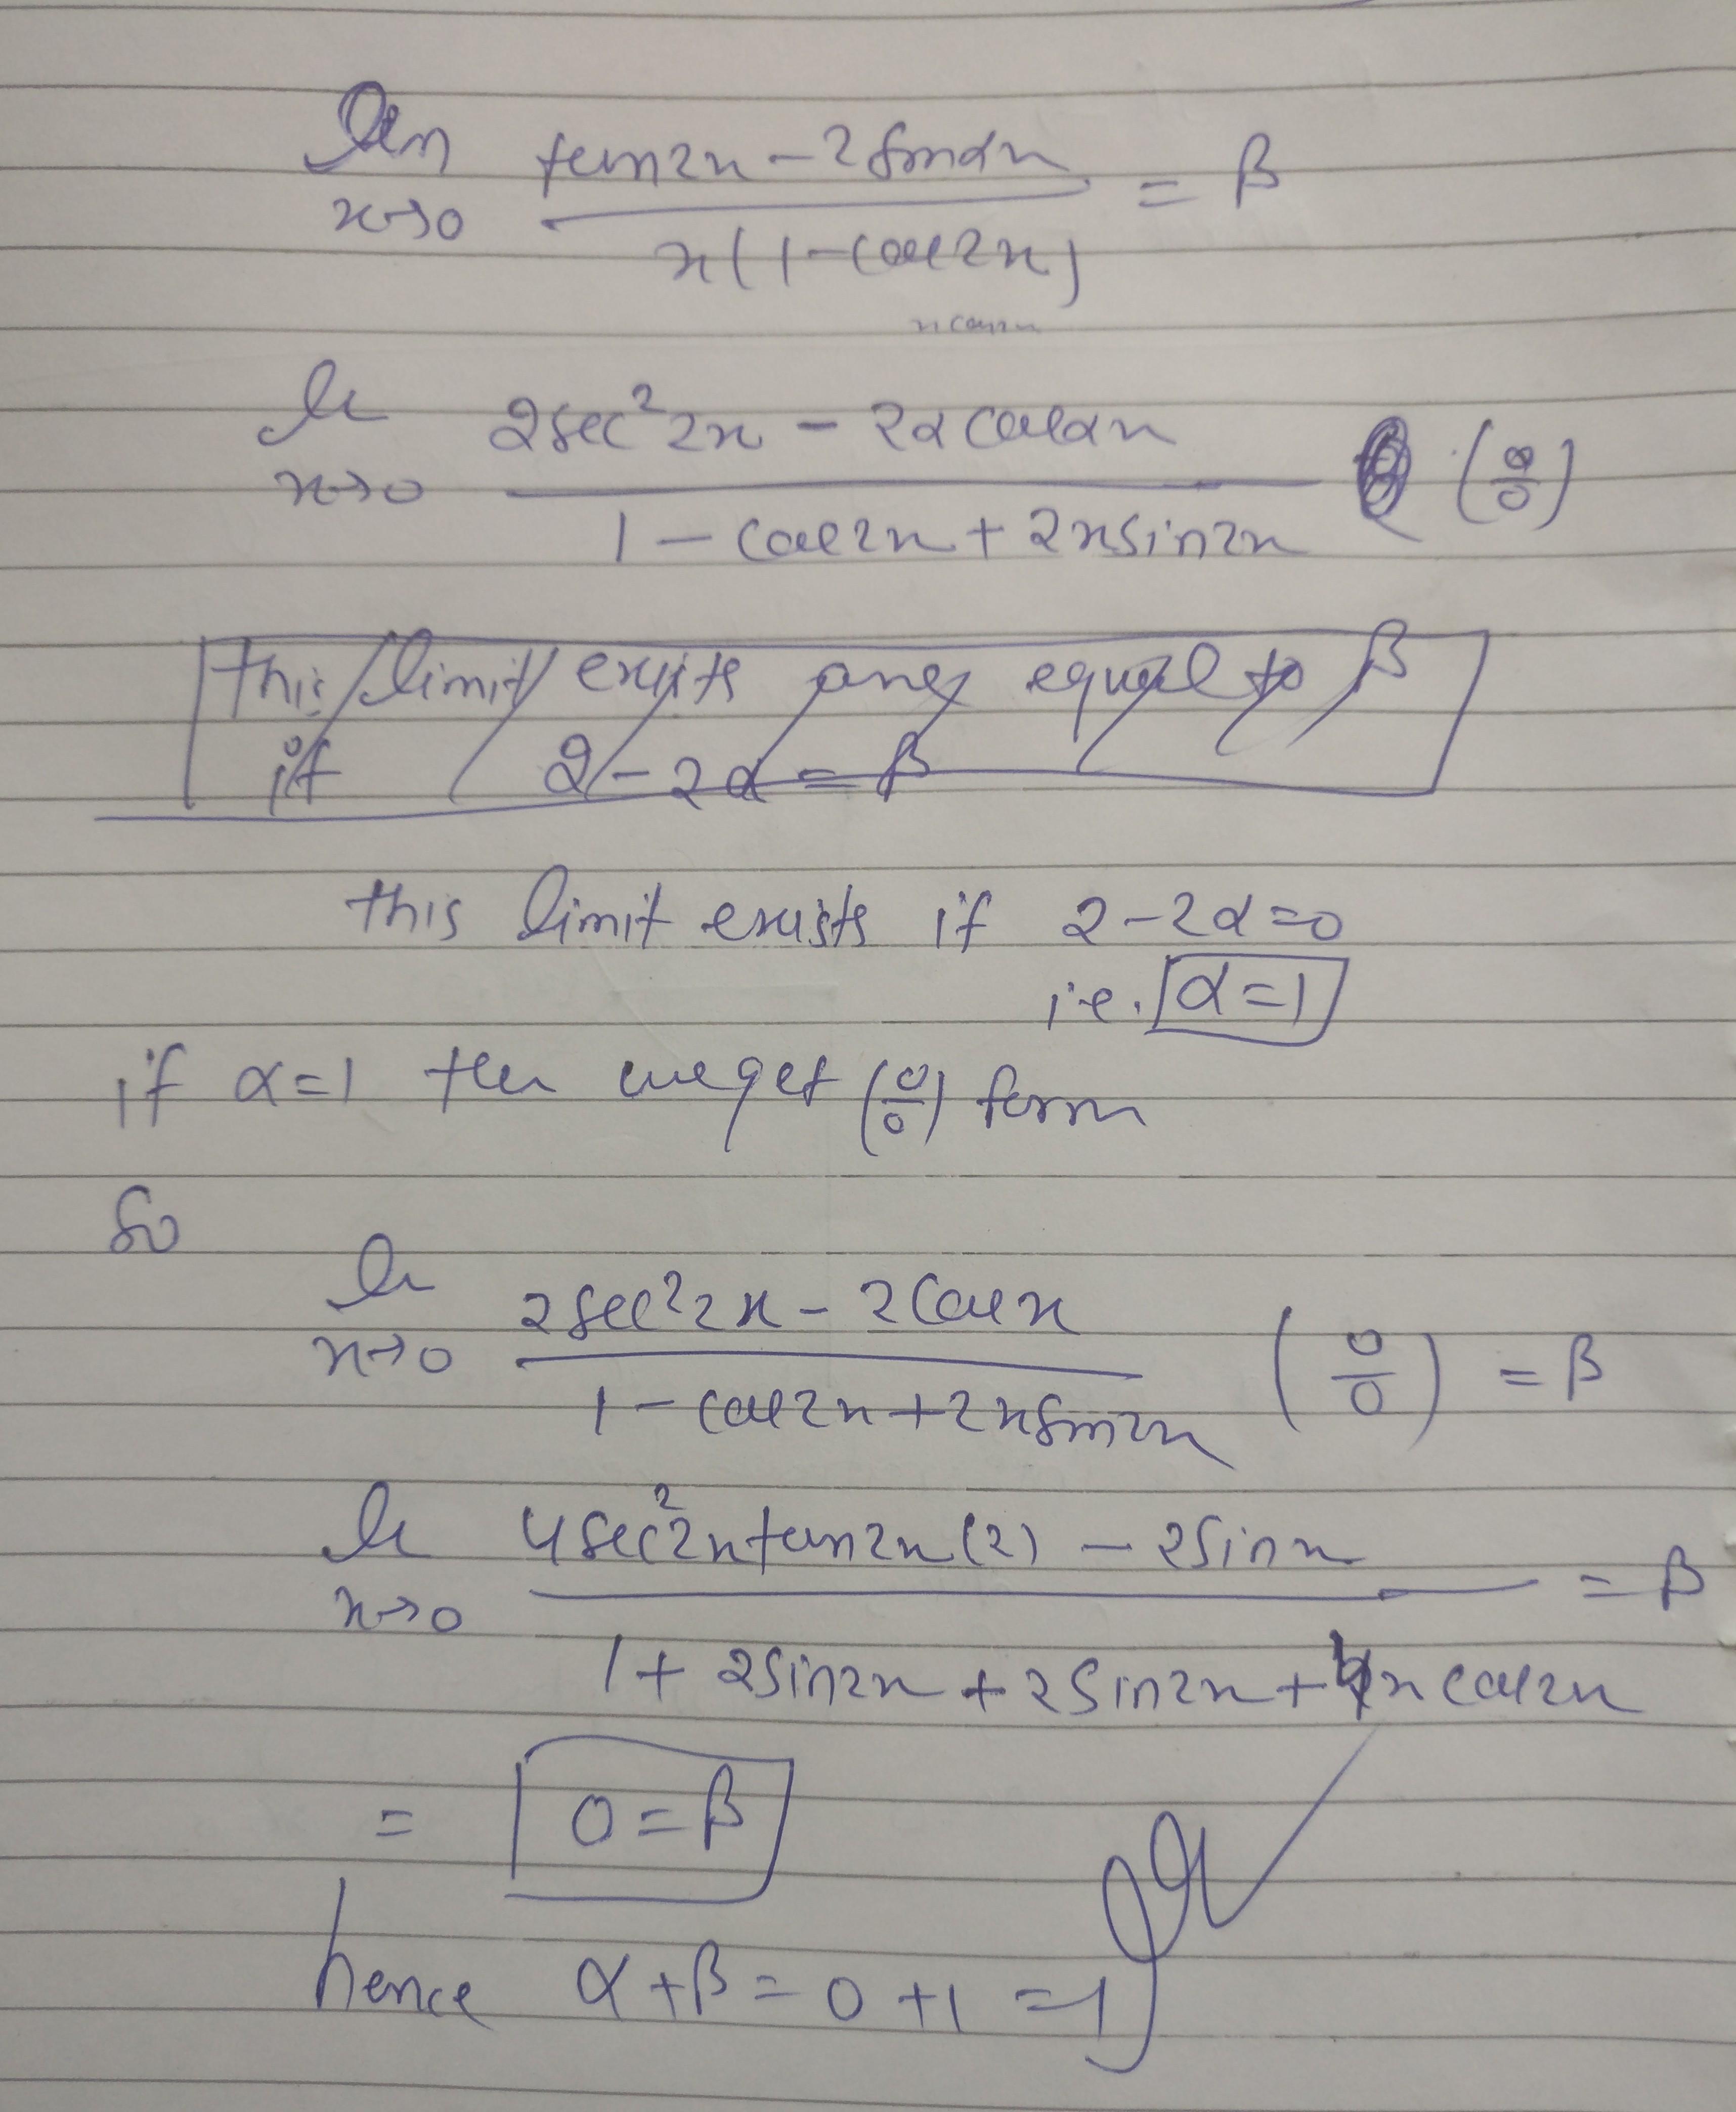 lim tan2x - 2 sinαx = β
x→0 x(1-cos2x)
lim 2sec²2x - 2α cosαx (0/0)
x→0 1 - cos2x + 2x sin2x
this limit exists and equal to β
if 2 - 2α = β
this limit exists if 2-2α=0
i.e. α=1
if α=1 then we get (0/0) form
So
lim 2sec²2x - 2cosx (0/0) = β
x→0 1 - cos2x + 2x sin2x
lim 4sec²2x tan2x (2) - 2sinx = β
x→0 1 + 2sin2x + 2sin2x + 4x cos2x
= 0 = β
hence α + β = 0 + 1 = 1